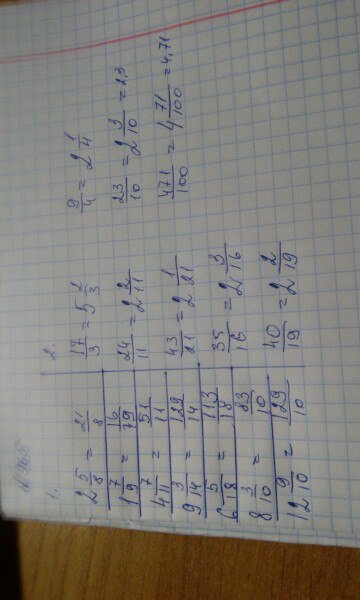 1.
2 5/8 = 21/8
1 7/9 = 16/9
4 7/11 = 51/11
9 3/14 = 129/14
6 5/18 = 113/18
8 3/10 = 83/10
12 9/10 = 129/10
2.
17/3 = 5 2/3
24/11 = 2 2/11
43/21 = 2 1/21
35/16 = 2 3/16
40/19 = 2 2/19
9/4 = 2 1/4
23/10 = 2 3/10 = 2,3
471/100 = 4 71/100 = 4,71